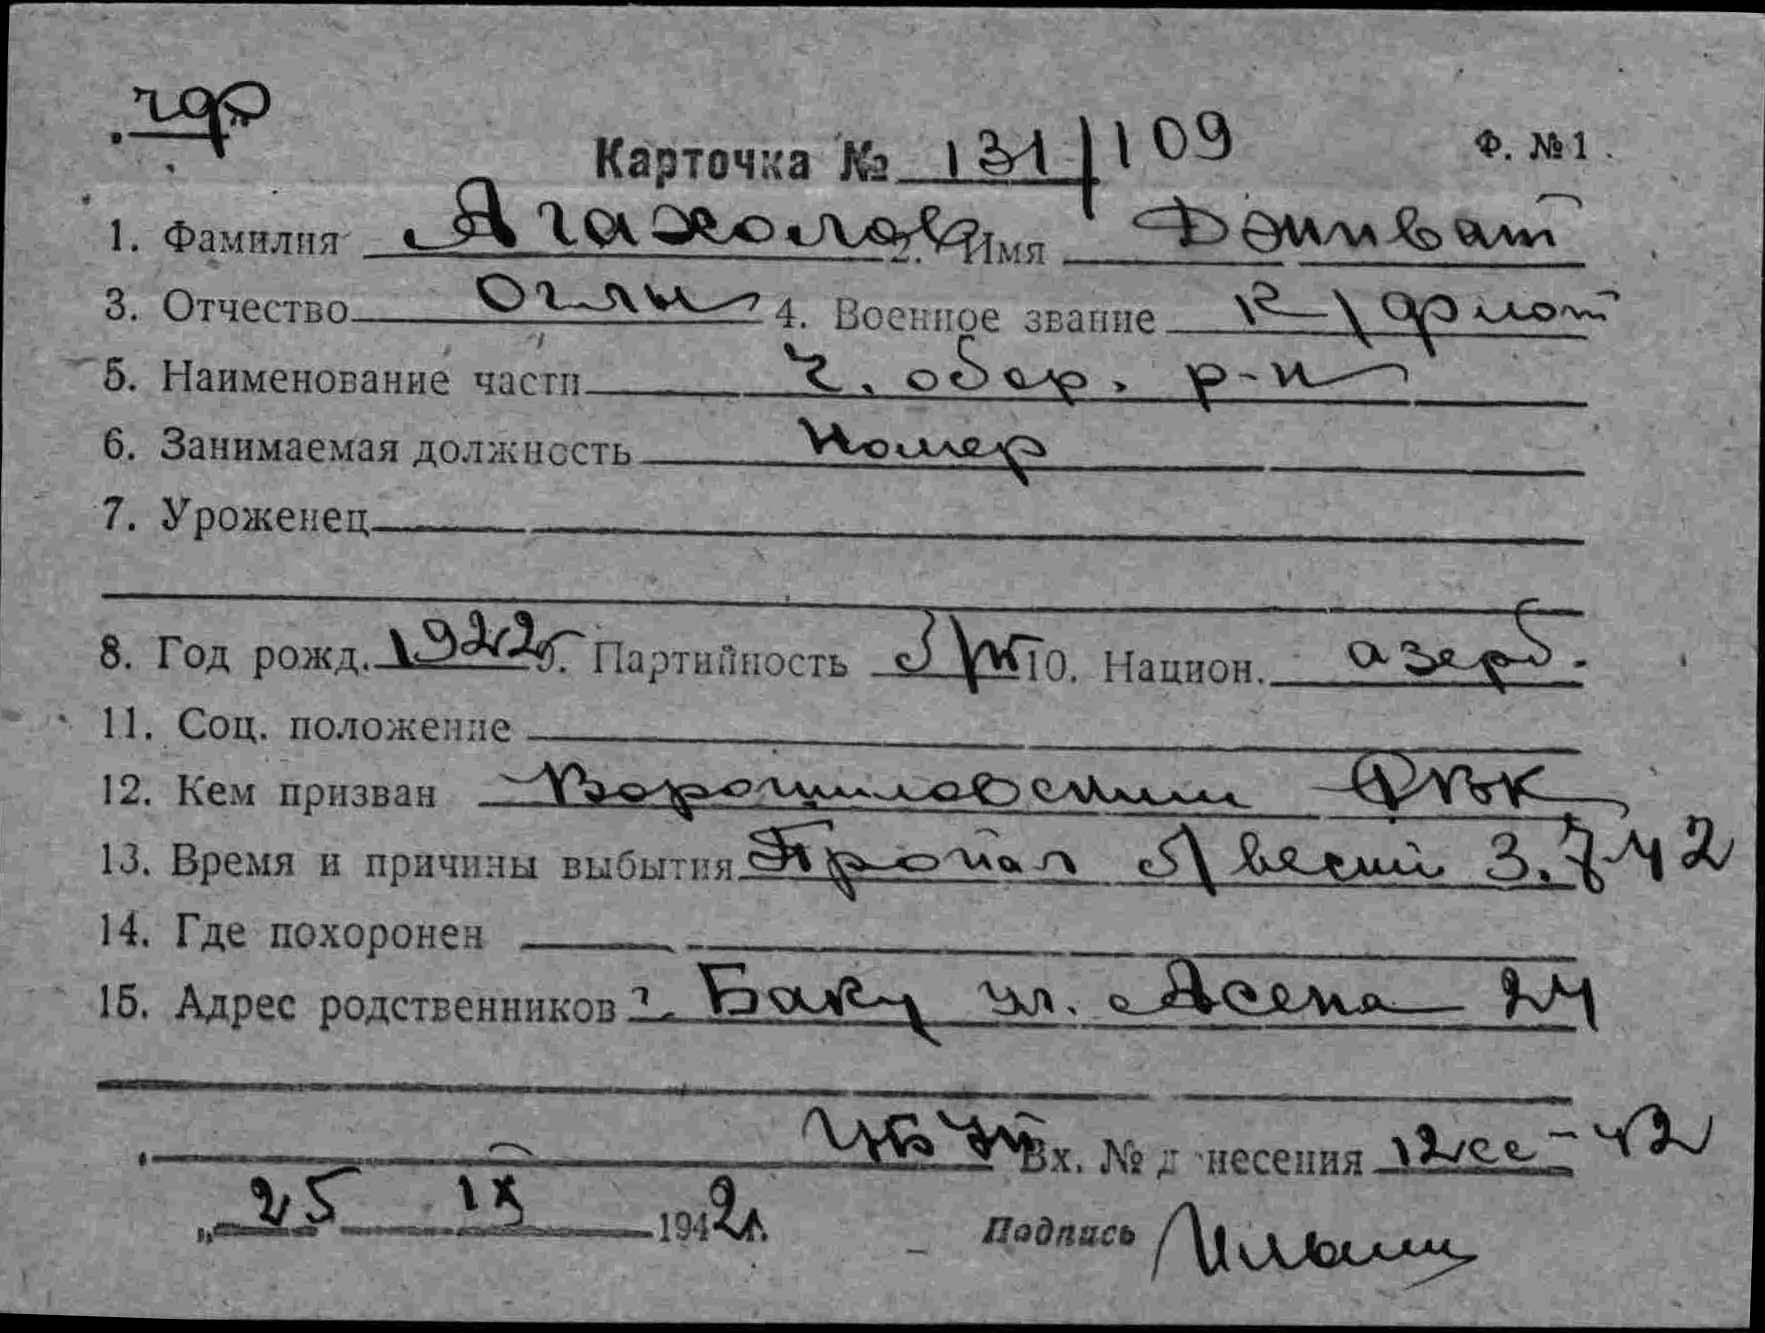 чф
Карточка № 131/109 Ф. №1.
1. Фамилия Агахолов 2. Имя Дэинват
3. Отчество Оглы 4. Военное звание к/флот
5. Наименование части Ч. обор. р-н
6. Занимаемая должность Номер
7. Уроженец
8. Год рожд. 1922 9. Партийность б/п 10. Национ. азерб.
11. Соц. положение
12. Кем призван Ворошиловским РВК
13. Время и причины выбытия Пропал б/вести 3.7-42
14. Где похоронен
15. Адрес родственников г. Баку ул. Асена 24
Вх. № донесения 12сс-42
„25 IX 1942г.
Подпись Ильин